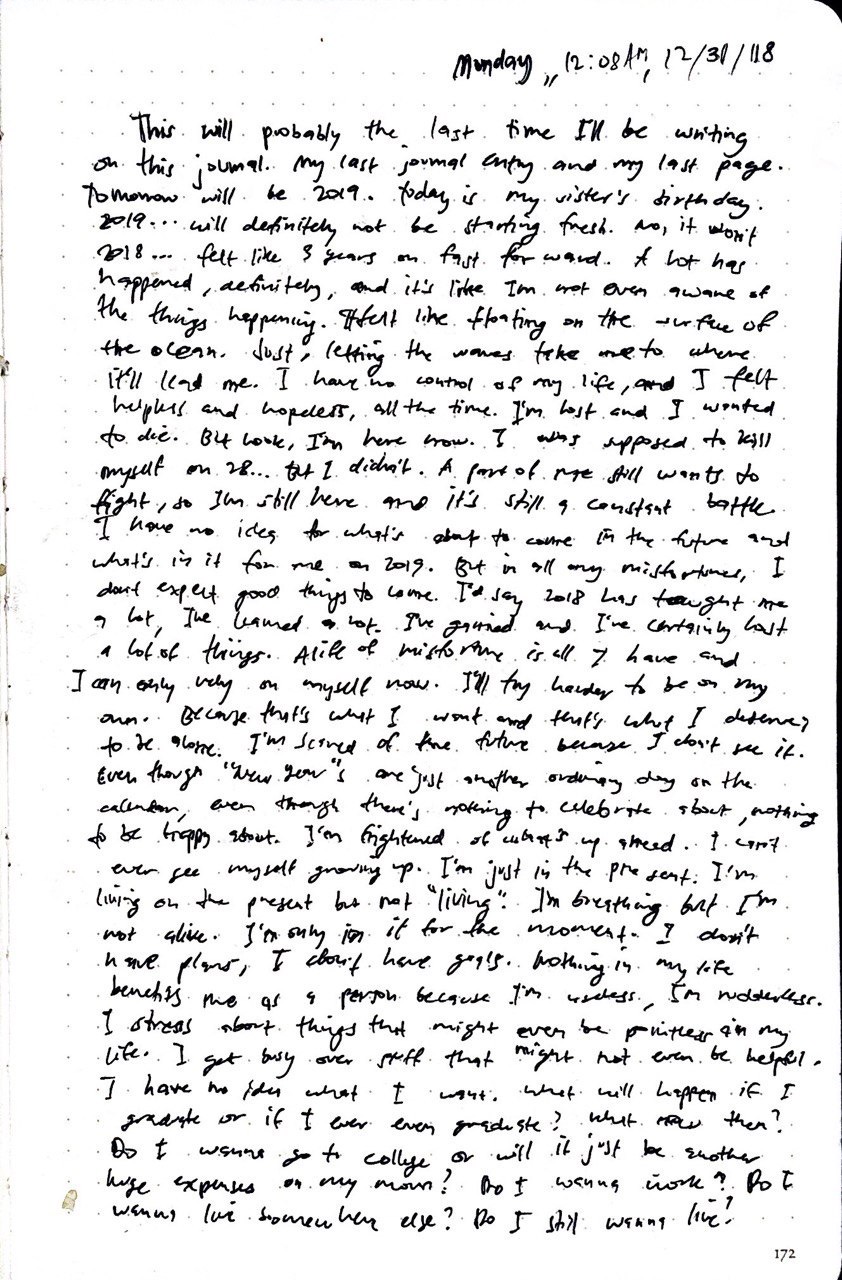 Monday, 12:08AM, 12/31/18
This will probably the last time I'll be writing
on this journal. My last journal entry and my last page.
Tomorrow will be 2019. Today is my sister's birthday.
2019... will definitely not be starting fresh. No, it won't
2018... felt like 3 years on fast forward. A lot has
happened, definitely, and it's like I'm not even aware of
the things happening. It felt like floating on the surface of
the ocean. Just, letting the waves take me to where
it'll lead me. I have no control of my life, and I felt
helpless and hopeless, all the time. I'm lost and I wanted
to die. But look, I'm here now. I was supposed to kill
myself on 28... but I didn't. A part of me still wants to
fight, so I'm still here and it's still a constant battle.
I have no idea for what's about to come in the future and
what's in it for me on 2019. But in all my misfortunes, I
don't expect good things to come. I'd say 2018 has taught me
a lot, I've learned a lot. I've gained and I've certainly lost
a lot of things. A life of misfortune is all I have and
I can only rely on myself now. I'll try harder to be on my
own. Because that's what I want and that's what I deserve,
to be alone. I'm scared of the future because I don't see it.
Even though "New Year"s are just another ordinary day on the
calendar, even though there's nothing to celebrate about, nothing
to be happy about. I'm frightened of what's up ahead. I can't
even see myself growing up. I'm just in the present. I'm
living on the present but not "living". I'm breathing but I'm
not alive. I'm only in it for the moment. I don't
have plans, I don't have goals. Nothing in my life
benefits me as a person because I'm useless, I'm rudderless.
I stress about things that might even be pointless in my
life. I get busy over stuff that might not even be helpful.
I have no idea what I want. What will happen if I
graduate or if I ever even graduate? What now then?
Do I wanna go to college or will it just be another
huge expenses on my mom? Do I wanna work? Do I
wanna live somewhere else? Do I still wanna live?
172